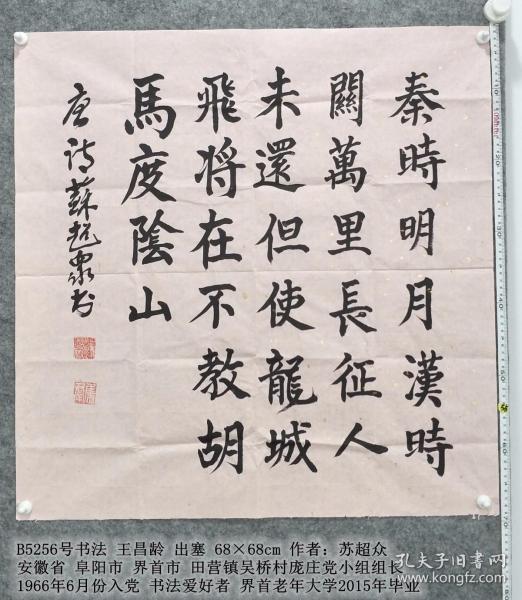 秦時明月漢時
關萬里長征人
未還但使龍城
飛将在不教胡
馬度陰山
唐诗蘇超眾书
B5256号书法 王昌龄 出塞 68×68cm 作者：苏超众
安徽省 阜阳市 界首市 田营镇吴桥村庞庄党小组组长
1966年6月份入党 书法爱好者 界首老年大学2015年毕业
孔夫子旧书网